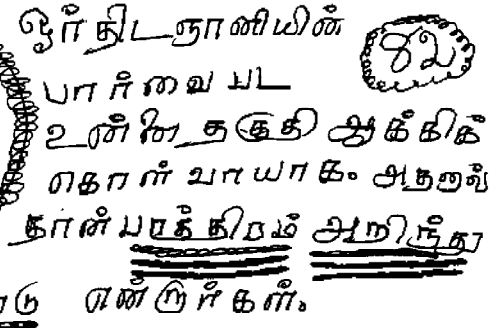 ஓர் திடஞானியின்
பார்வை பட
உன்னை தகுதி ஆக்கிக்
கொள்வாயாக. அதனால்
தான் பாத்திரம் அறிந்து
என்றார்கள்.